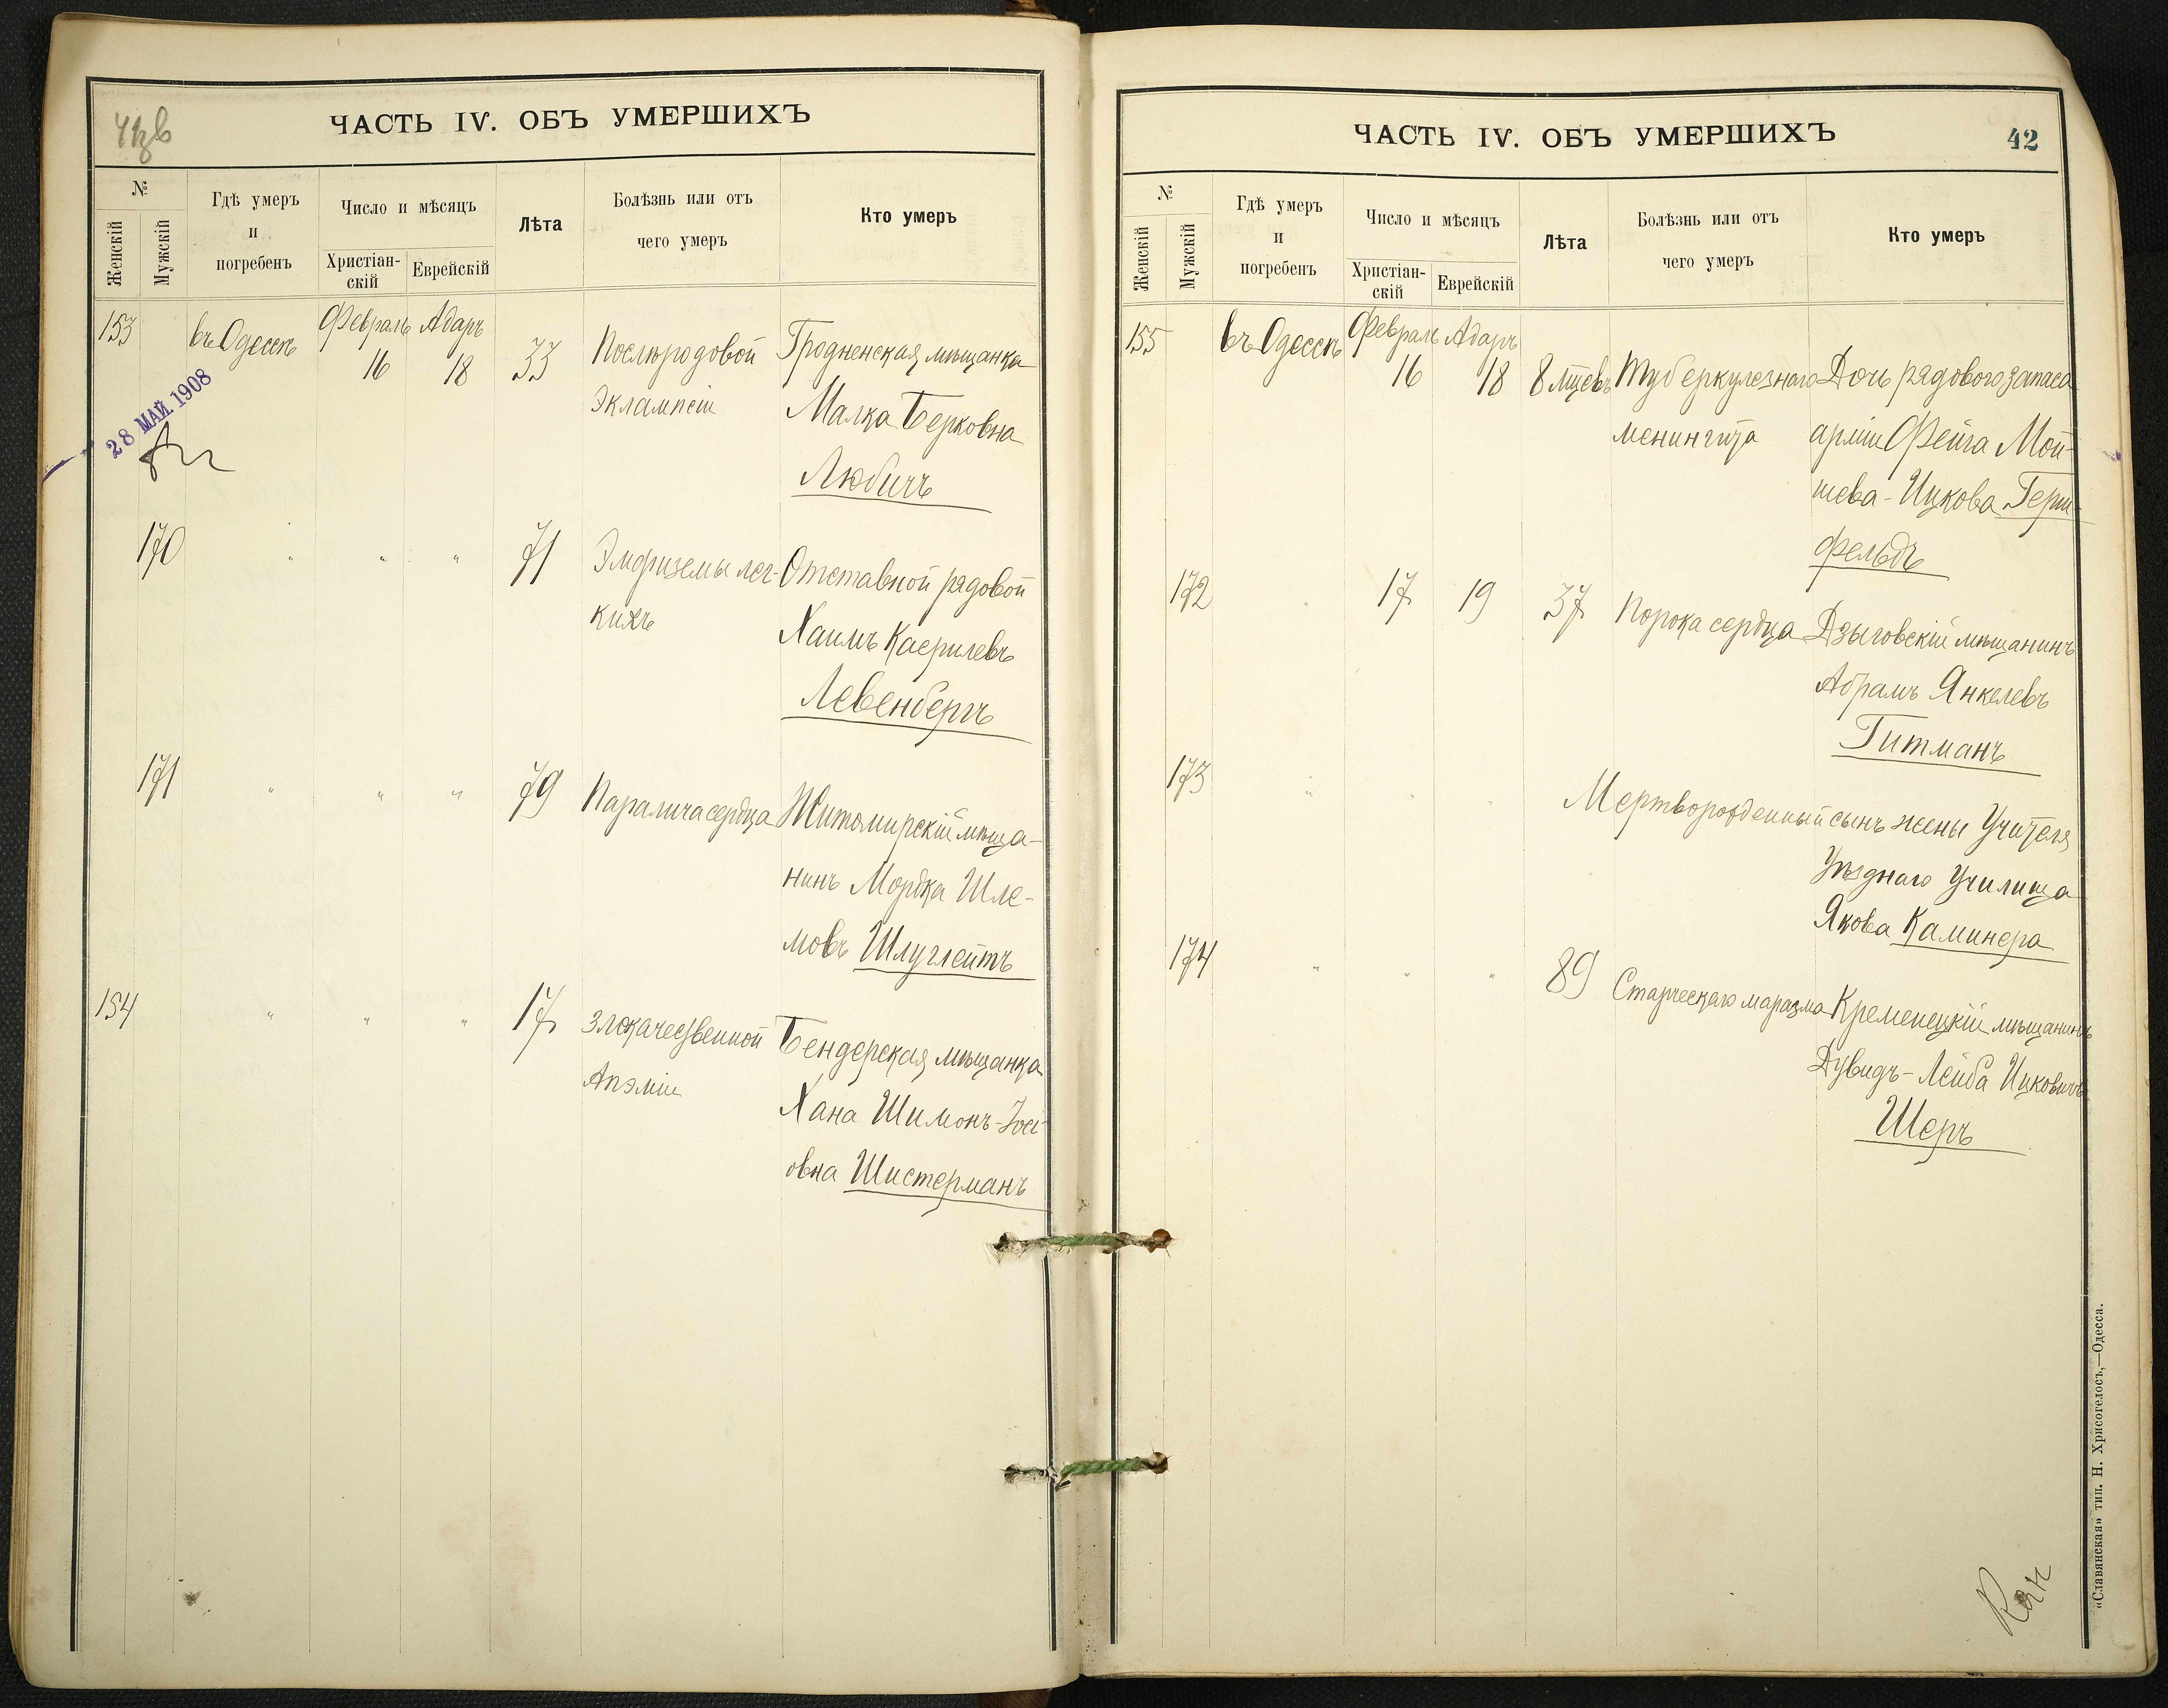 ЧАСТЬ IV. ОБЪ УМЕРШИХЪ
№
Женскій
Мужскій
Гдѣ умеръ
и
погребенъ
Число и мѣсяцъ
Христіан-
скій
Еврейскій
Лѣта
Болѣзнь или отъ
чего умеръ
Кто умеръ
153 въ Одессѣ Февраль Адаръ
16 18 33 Послѣродовой Гродненская мѣщанка
Эклампсіи Малка Берковна
Любичъ
28 МАЙ 1908
170 " " " 71 Эмфиземы лег- Отставной рядовой
кихъ Хаимъ Касрилевъ
Левенбергъ
171 " " " 79 Паралича сердца Житомирскій мѣща-
нинъ Мордка Шле-
мовъ Шлуглейтъ
154 " " " 17 Злокачественной Бендерская мѣщанка
Анэміи Хана Шимонъ-Іос-
овна Шистерманъ
ЧАСТЬ IV. ОБЪ УМЕРШИХЪ 42
№
Женскій
Мужскій
Гдѣ умеръ
и
погребенъ
Число и мѣсяцъ
Христіан-
скій
Еврейскій
Лѣта
Болѣзнь или отъ
чего умеръ
Кто умеръ
155 въ Одессѣ Февраль Адаръ
16 18 8 мцевъ Туберкулезнаго Дочь рядового запаса
менингита арміи Фейга Мой-
шева-Ицкова Герш-
фельдъ
172 " 17 19 37 Порока сердца Дзыговскій мѣщанинъ
Абрамъ Янкелевъ
Гитманъ
173 " " " Мертворожденный сынъ жены Учителя
Уѣзднаго Училища
Якова Каминера
174 " " " 89 Старческаго маразма Кременецкій мѣщанинъ
Дувидъ-Лейба Ицковичъ
Шеръ
«Славянская» тип. Н. Хрисогелосъ,—Одесса.